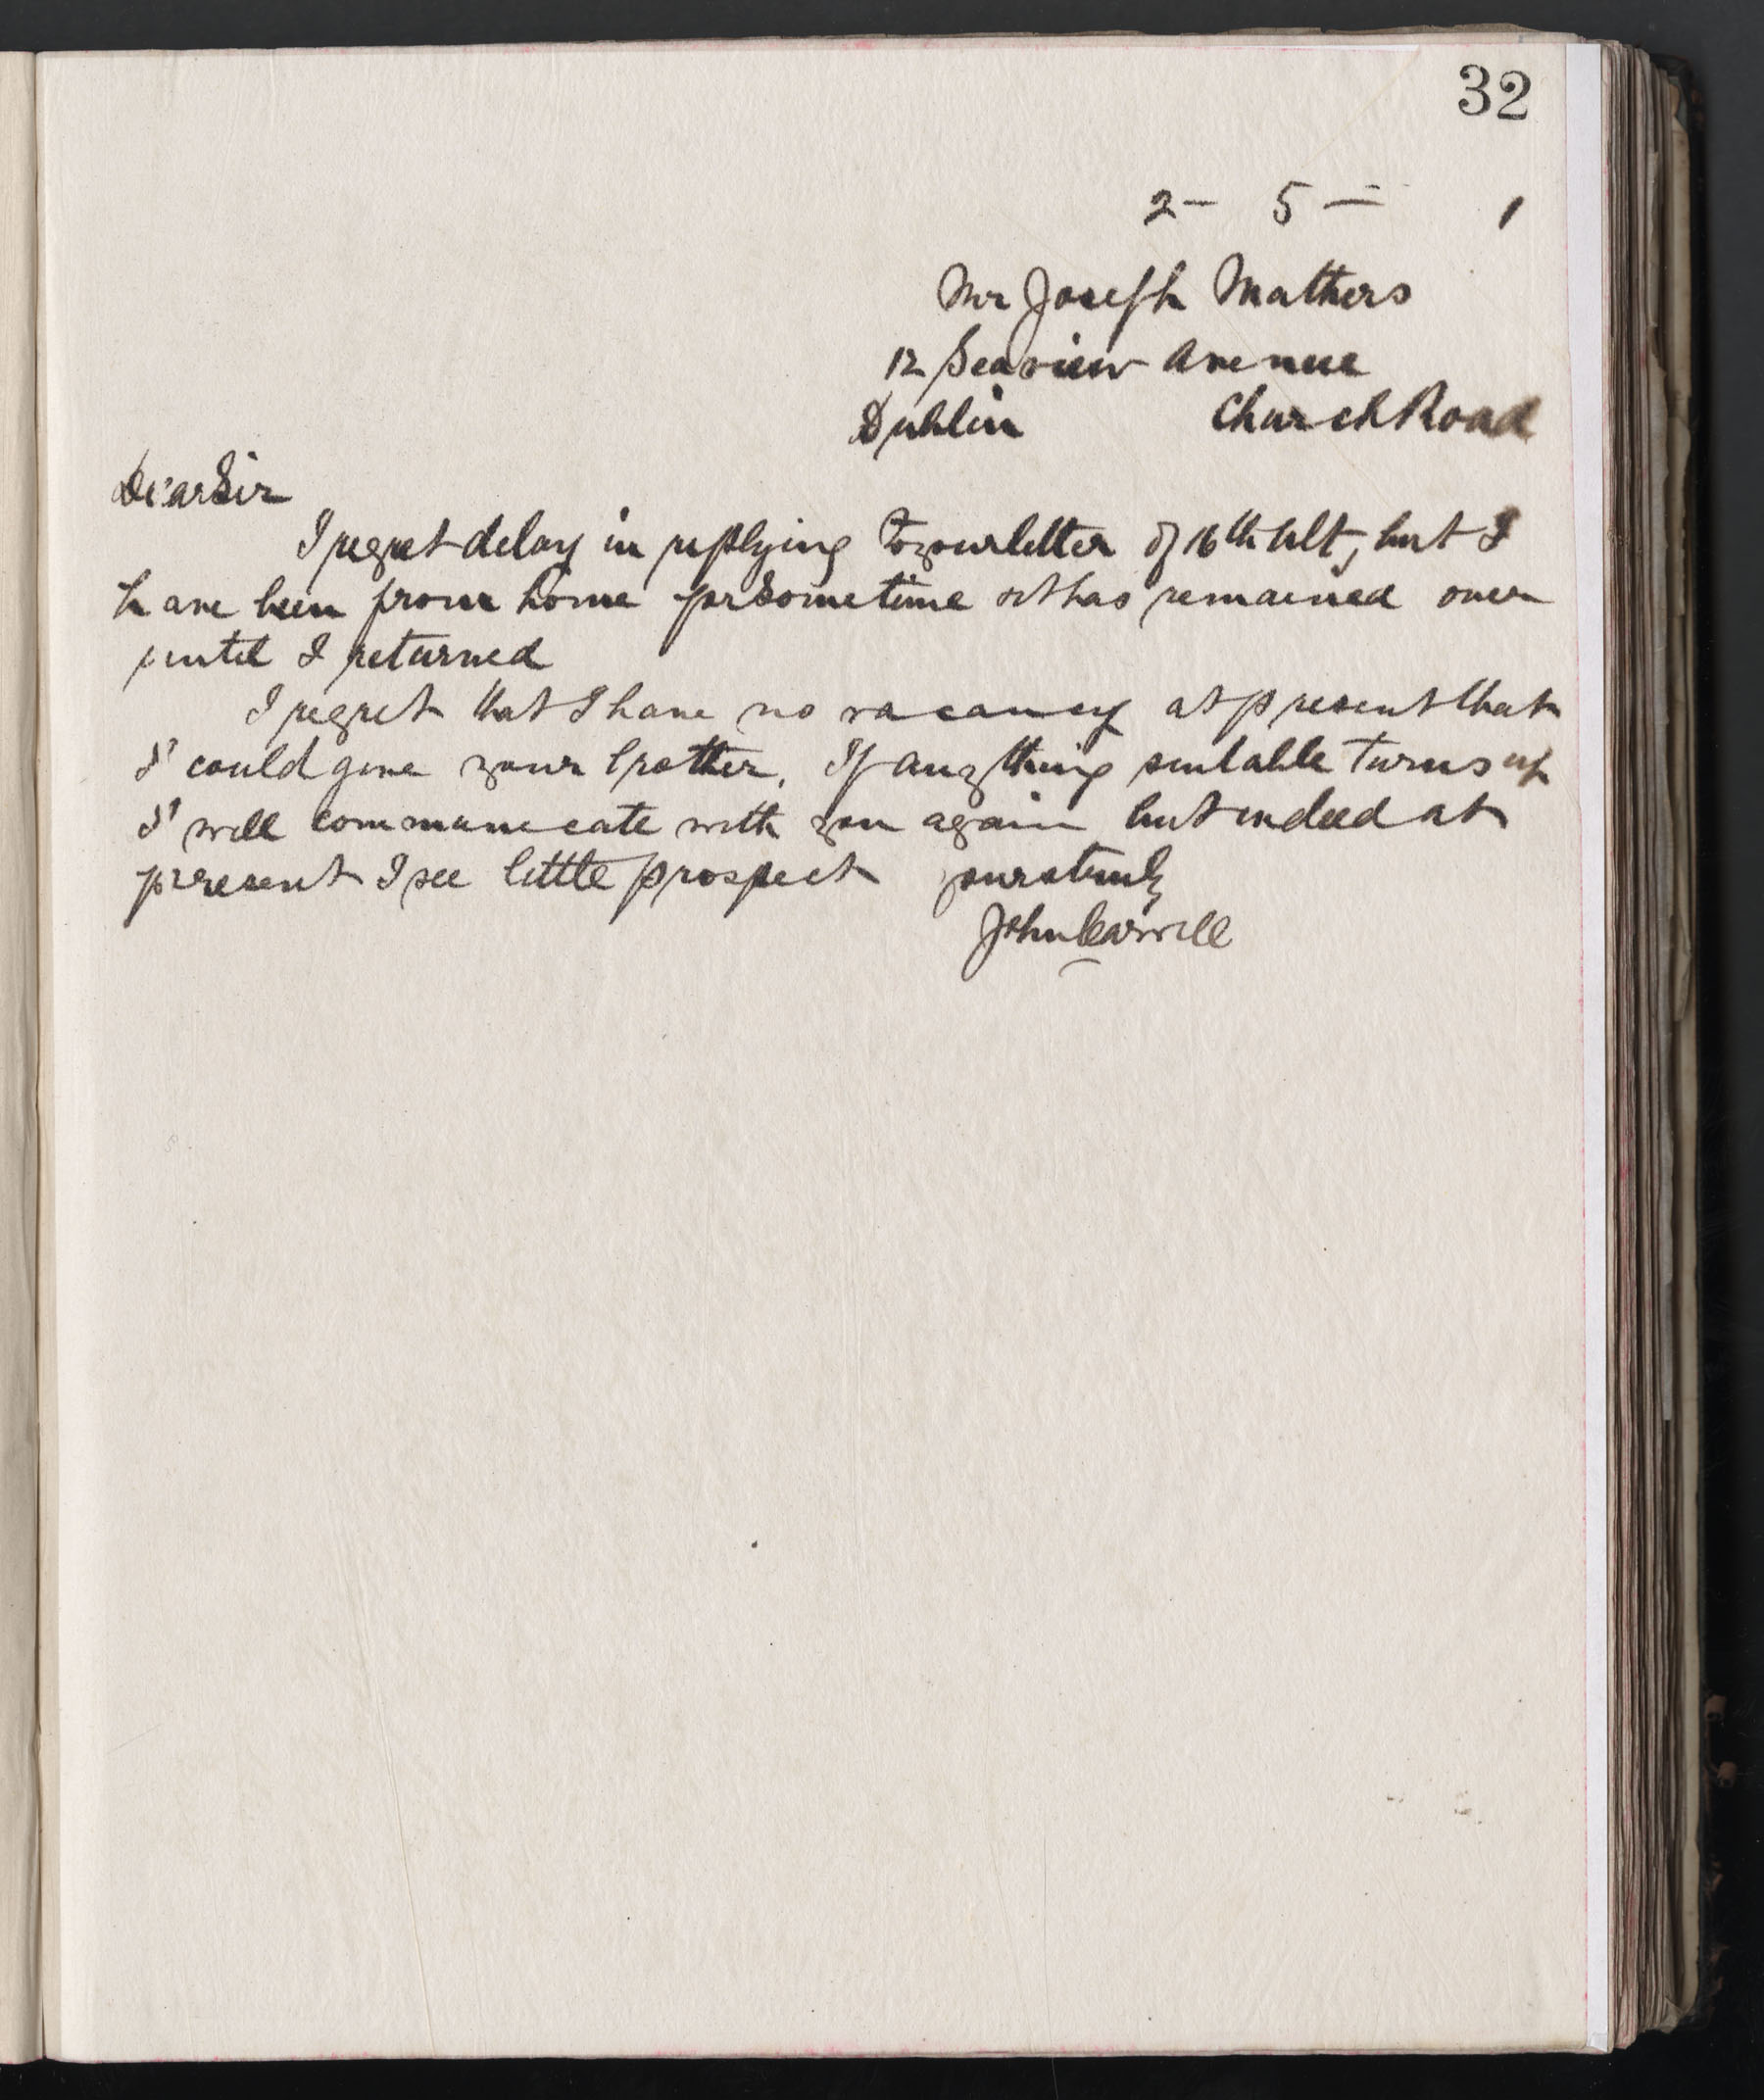 32
2 - 5 - 1
Mr Joseph Mathers
12 Seaview Avenue
Dublin Church Road
Dear Sir
I regret delay in replying to your letter of 16th Ult, but I
have been from home for some time & it has remained over
until I returned
I regret that I have no vacancy at present that
I could give your brother. If anything suitable turns up
I will communicate with you again but indeed at
present I see little prospect yours truly
John Carvill